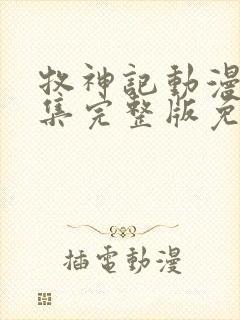 牧神記動漫
集完整版免
插電動漫